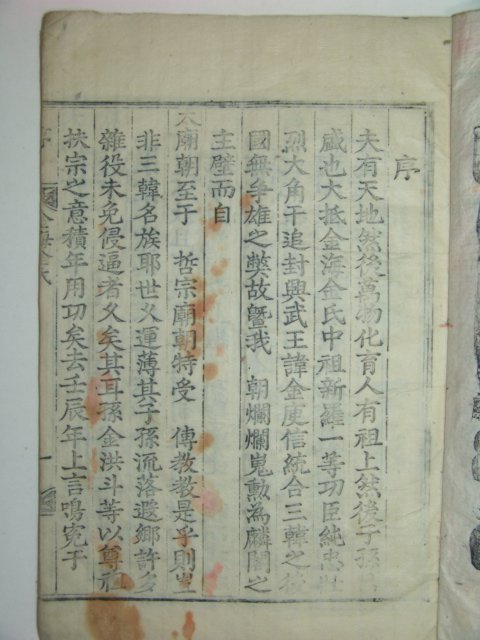 序
夫有天地然後萬物化育人有祖上然後子孫
盛也大抵金海金氏中祖新羅一等功臣純忠壯
烈大角干追封興武王諱金庾信統合三韓之後
國無爭雄之弊故曁我 朝爛爛嵬勳為麟閣之
主壁而自
太廟朝至于 哲宗廟朝特受 傳教教是乎則豈
非三韓名族耶世久運薄其子孫流落遐鄉許多
雜役未免侵逼者久矣其耳孫金洪斗等以尊祖
扶宗之意積年用功矣去壬辰年上言鳴寃于
序 金海金氏 一